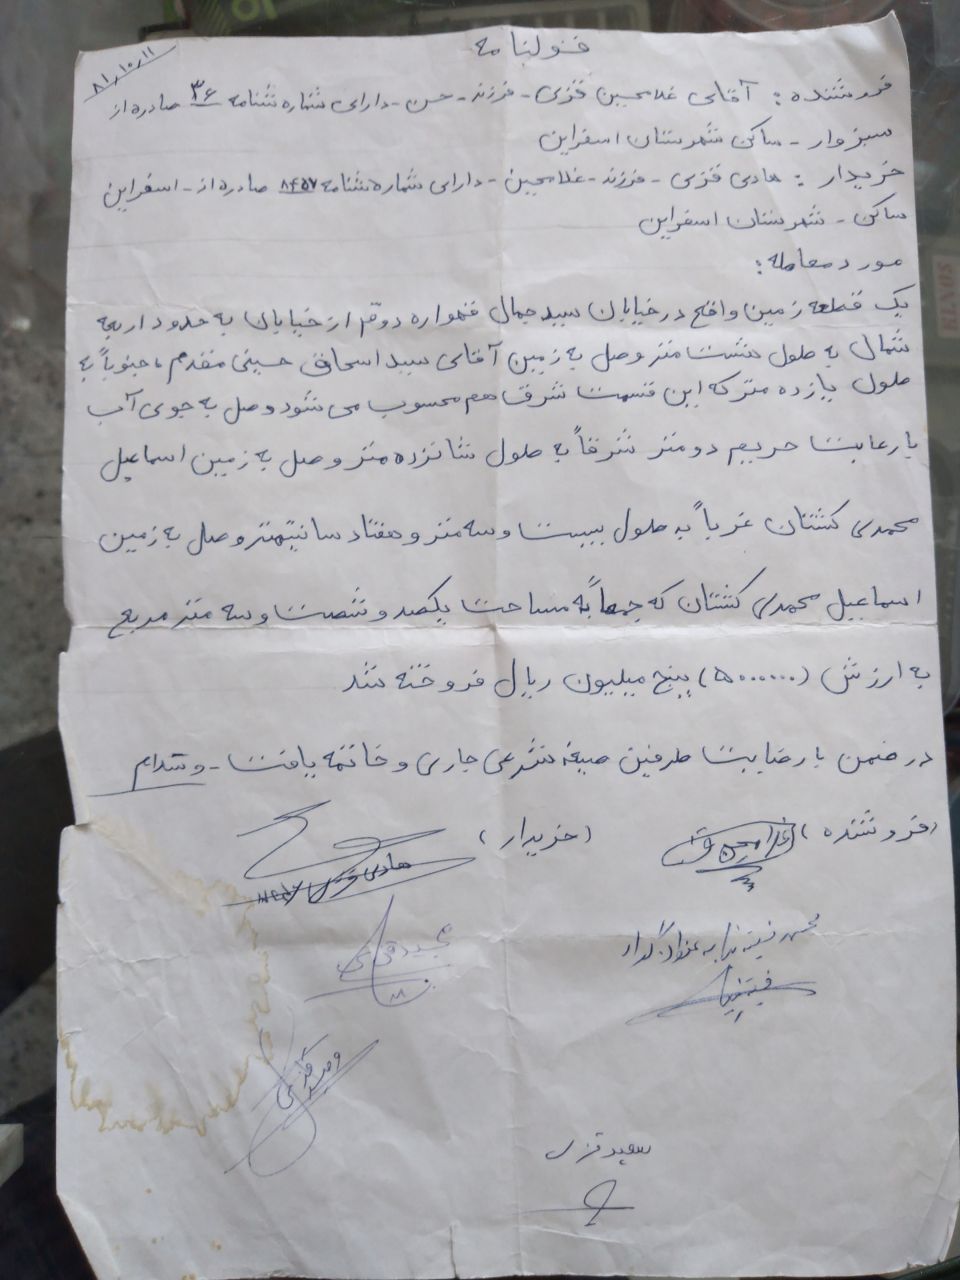 قولنامه
۸۱،۱۰،۱۱
فروشنده : آقای غلامحسین قزی - فرزند - حسن - دارای شماره شنامه ۳۶ صادره از
سبزوار - ساکن شهرستان اسفراین
خریدار : هادی قزی - فرزند - غلامحسین - دارای شماره شنامه ۸۴۵۷ صادره از - اسفراین
ساکن - شهرستان اسفراین
مورد معامله :
یک قطعه زمین واقع در خیابان سید جمال قمواره دوّم از خیابان به حدود اربعه
شمال به طول هشت متر وصل به زمین آقای سید اسحاق حسینی مقدم ، جنوباً به
طول یازده متر که این قسمت شرق هم محسوب می شود وصل به جوی آب
با رعایت حریم دو متر شرقاً به طول شانزده متر وصل به زمین اسماعیل
محمدی کشتان غرباً به طول بیست و سه متر و هفتاد سانیتمتر وصل به زمین
اسماعیل محمدی کشتان که جمعاً به مساحت یکصد و شصت و سه متر مربع
به ارزش (۵۰۰۰۰۰۰) پنج میلیون ریال فروخته شد
در ضمن با رضایت طرفین صیغه شرعی جاری و خاتمه یافت - و سلام
(فروشنده) (خریدار)
غلامحسین ق
هادی قزی
مجید قزی
وحید قزی
سعید قزی